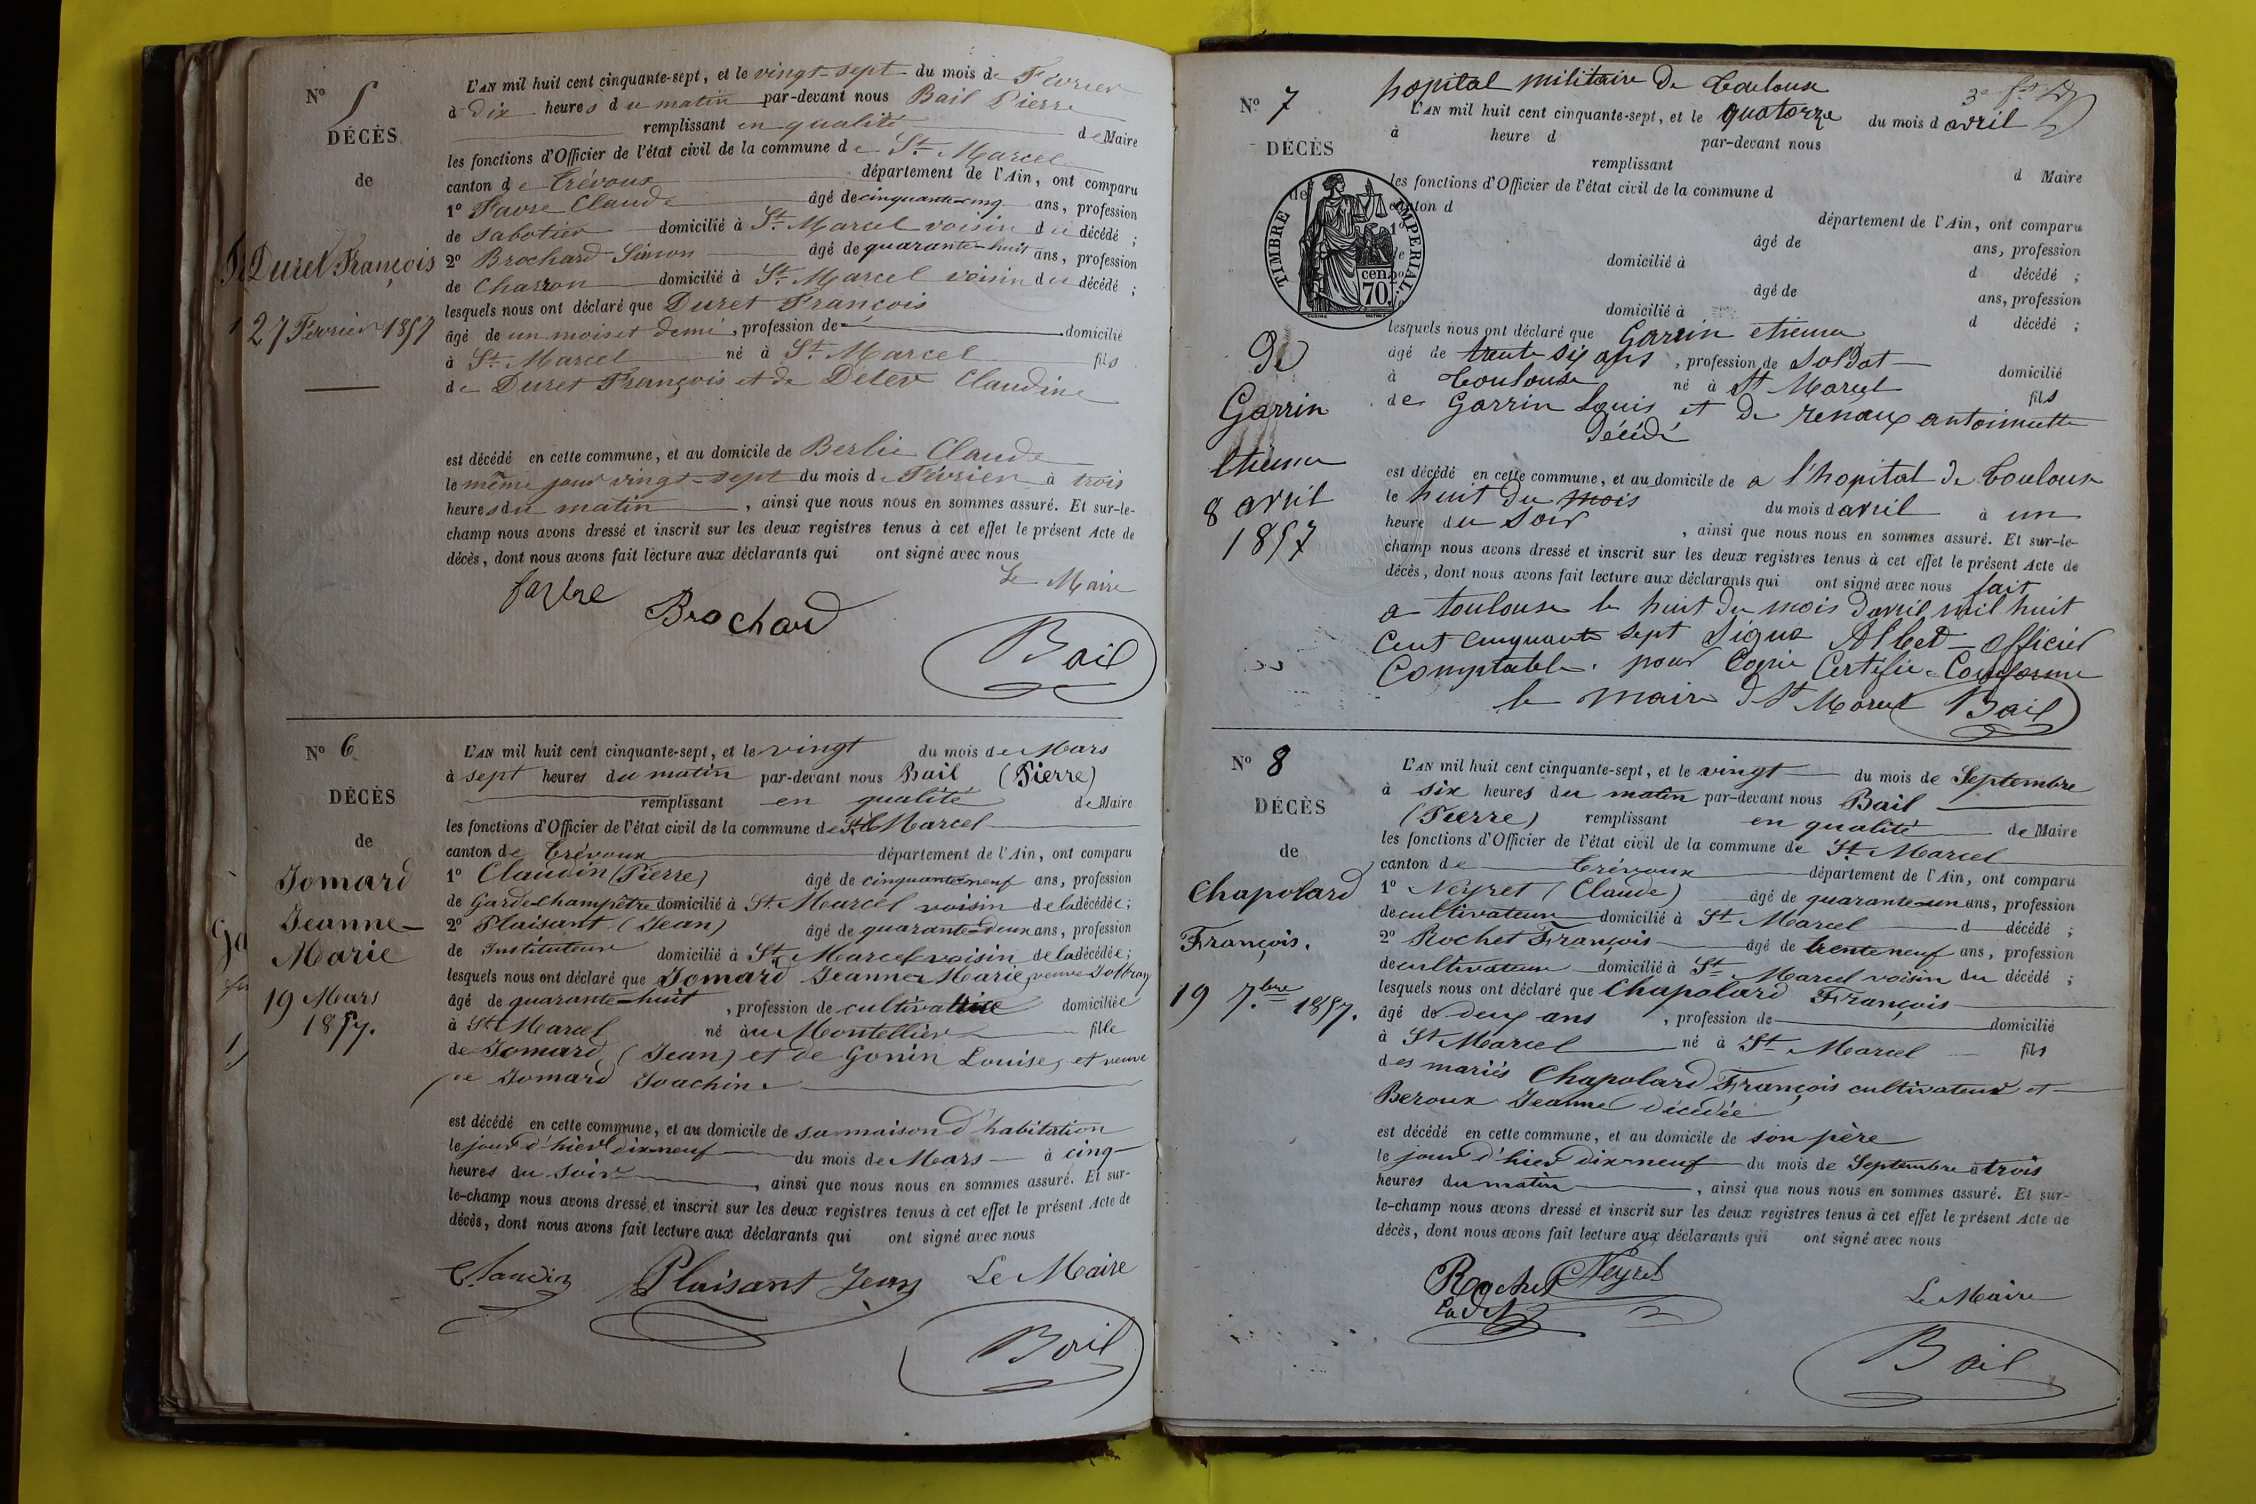 Nº 5
DÉCÈS
de
Duret François
27 Février 1857
L'AN mil huit cent cinquante-sept, et le vingt-sept du mois de Février
à dix heures du matin par-devant nous Bail Pierre
remplissant en qualité de Maire
les fonctions d'Officier de l'état civil de la commune de St. Marcel
canton de Trévoux département de l'Ain, ont comparu
1º Favre Claude âgé de cinquante-cinq ans, profession
de Sabotier domicilié à St. Marcel voisin du décédé ;
2º Brochard Simon âgé de quarante-huit ans, profession
de Charron domicilié à St. Marcel voisin du décédé ;
lesquels nous ont déclaré que Duret François
âgé de un mois et demi, profession de domicilié
à St. Marcel né à St. Marcel fils
de Duret François et de Claudine
est décédé en cette commune, et au domicile de Berlie Claude
le même jour vingt-sept du mois de Février à trois
heures du matin, ainsi que nous nous en sommes assuré. Et sur-le-
champ nous avons dressé et inscrit sur les deux registres tenus à cet effet le présent Acte de
décès, dont nous avons fait lecture aux déclarants qui ont signé avec nous
Le Maire
favre Brochard
Bail
Nº 6
DÉCÈS
de
Jomard
Jeanne-
Marie
19 Mars
1857.
L'AN mil huit cent cinquante-sept, et le vingt du mois de Mars
à sept heures du matin par-devant nous Bail (Pierre)
remplissant en qualité de Maire
les fonctions d'Officier de l'état civil de la commune de St. Marcel
canton de Trévoux département de l'Ain, ont comparu
1º Claudin (Pierre) âgé de cinquante-neuf ans, profession
de Garde-Champêtre domicilié à St. Marcel voisin de la décédée ;
2º Plaisant (Jean) âgé de quarante-deux ans, profession
de Instituteur domicilié à St. Marcel voisin de la décédée ;
lesquels nous ont déclaré que Jomard Jeanne Marie, veuve
âgé de quarante-huit, profession de cultivatrice domiciliée
à St. Marcel né au Montellier fille
de Jomard (Jean) et de Gonin Louise, et veuve
de Jomard Joachin
est décédé en cette commune, et au domicile de sa maison d'habitation
le jour d'hier dix-neuf du mois de Mars à cinq
heures du soir, ainsi que nous nous en sommes assuré. Et sur-
le-champ nous avons dressé et inscrit sur les deux registres tenus à cet effet le présent Acte de
décès, dont nous avons fait lecture aux déclarants qui ont signé avec nous
Claudin Plaisant Jean Le Maire
Bail
hopital militaire de Toulouse
Nº 7
DÉCÈS
de
TIMBRE IMPERIAL
70 cen.
De
Garrin
Etienne
8 avril
1857
L'AN mil huit cent cinquante-sept, et le quatorze du mois d avril
à heure d par-devant nous
remplissant d Maire
les fonctions d'Officier de l'état civil de la commune d
canton d département de l'Ain, ont comparu
1º âgé de ans, profession
de domicilié à d décédé ;
âgé de ans, profession
domicilié à d décédé ;
lesquels nous ont déclaré que Garrin etienne
âgé de trente six ans, profession de Soldat domicilié
à Toulouse né à St Marcel fils
de Garrin Louis et de renaux antoinette
Décédé
est décédé en cette commune, et au domicile de a l'hopital de Toulouse
le huit du mois du mois d avril à un
heure du Soir, ainsi que nous nous en sommes assuré. Et sur-le-
champ nous avons dressé et inscrit sur les deux registres tenus à cet effet le présent Acte de
décès, dont nous avons fait lecture aux déclarants qui ont signé avec nous fait
a toulouse le huit du mois davril mil huit
Cent Cinquante Sept Signé Albert officier
Comptable. pour Copie Certifié Conforme
le maire d St Marcel Bail
Nº 8
DÉCÈS
de
Chapolard
François.
19 7.bre 1857.
L'AN mil huit cent cinquante-sept, et le vingt du mois de Septembre
à six heures du matin par-devant nous Bail
(Pierre) remplissant en qualité de Maire
les fonctions d'Officier de l'état civil de la commune de St. Marcel
canton de Trévoux département de l'Ain, ont comparu
1º Neyret (Claude) âgé de quarante-un ans, profession
de cultivateur domicilié à St Marcel d décédé ;
2º Rochet François âgé de trente neuf ans, profession
de cultivateur domicilié à St Marcel voisin du décédé ;
lesquels nous ont déclaré que Chapolard François
âgé de deux ans, profession de domicilié
à St Marcel né à St Marcel fils
des mariés Chapolard François cultivateur et
Beroux Jeanne décédée
est décédé en cette commune, et au domicile de son père
le jour d'hier dix-neuf du mois de Septembre à trois
heures du matin, ainsi que nous nous en sommes assuré. Et sur-
le-champ nous avons dressé et inscrit sur les deux registres tenus à cet effet le présent Acte de
décès, dont nous avons fait lecture aux déclarants qui ont signé avec nous
Rochet Neyret
Cadet
Le Maire
Bail